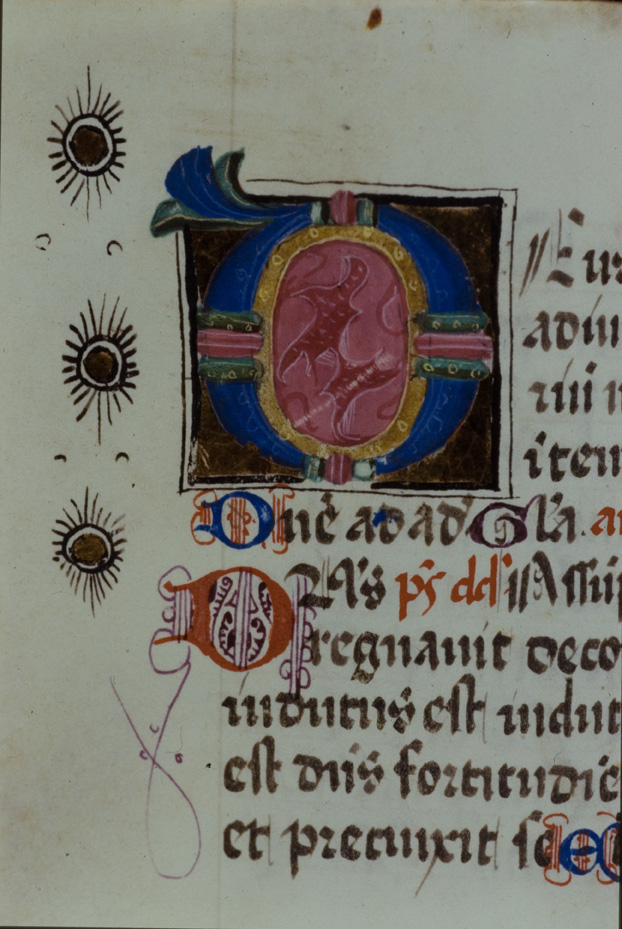 DEus
adiu
riii
iten
Dne ad ad Gla. a
As ps dd Assu
Dregnauit deco
indutus est indut
est dns fortitudie
et precinxit se E